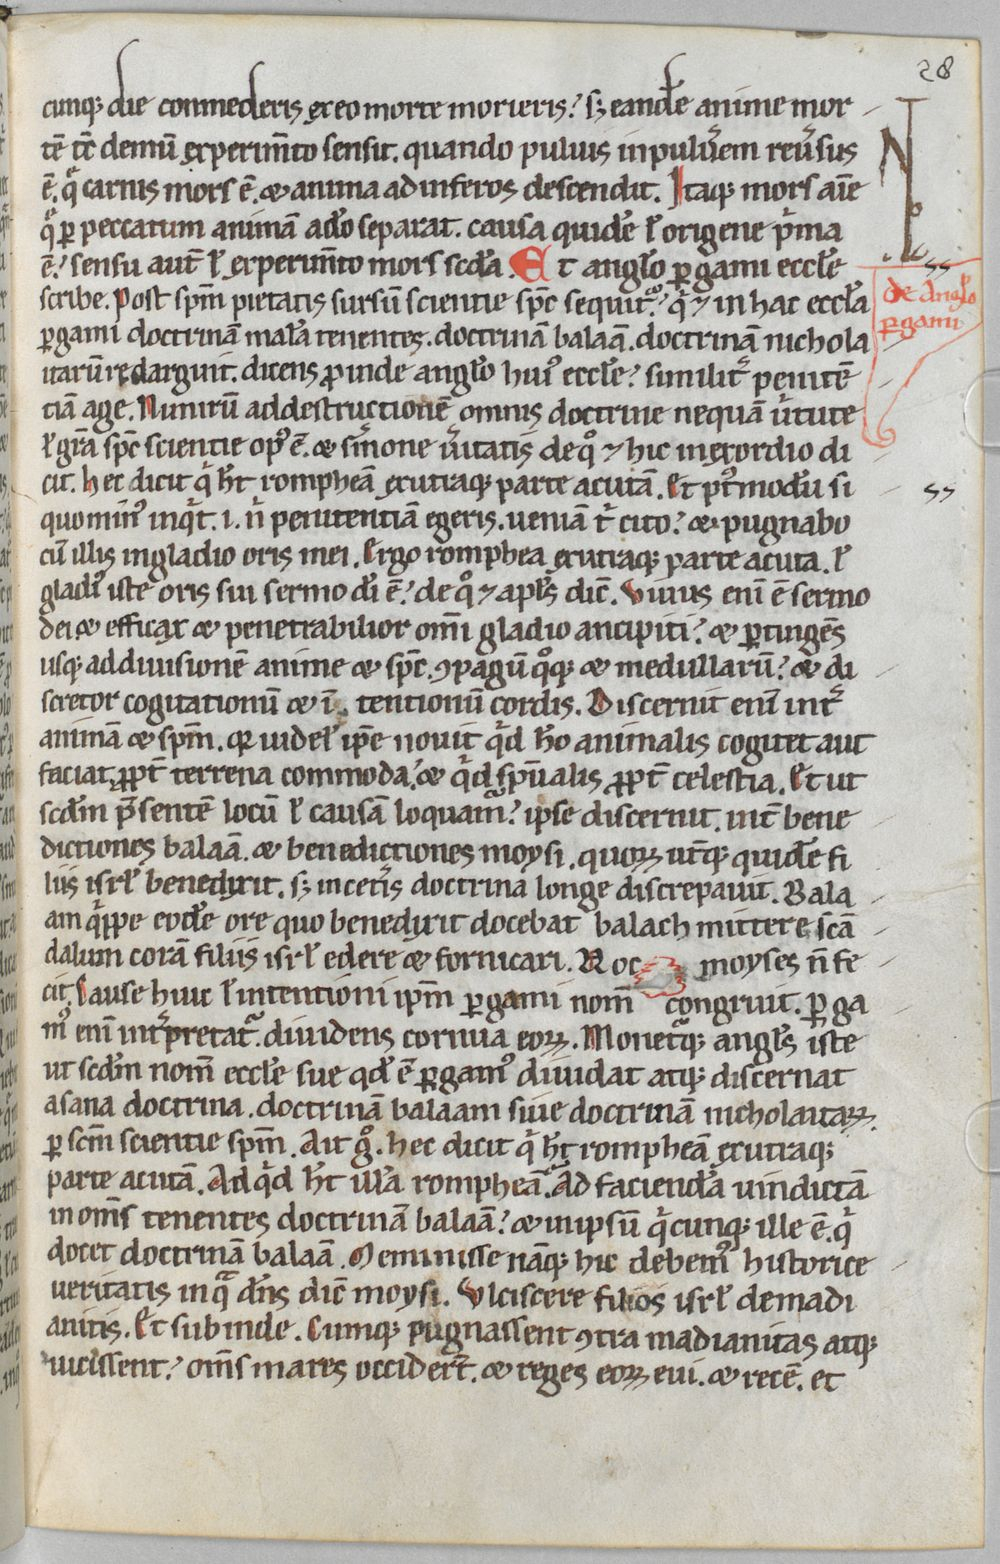 28
cunq; die conmederis ex eo morte morieris? sꝫ eandē anime mor
tē tc̄ demū exper im̄to sensit. quando puluis in puluͥem reuͥsus
ē. qͣ carnis mors ē. ⁊ anima ad inferos descendit. Itaq; mors aīe
qͣ ꝑ peccatum animā a dō separat. causa quidē ł origene pͥma
ē? sensu aut̄ ł experim̄to mors scd̄a. Et anglo ꝑgami eccłe
scribe. Post spm̄ pietatis sursū scientie spc̄ sequit᷑? qͥ ⁊ in hac eccła
ꝑgami doctrinā malā tenentes. doctrinā balaā. doctrinā nichola
itarū redarguit. dicens ꝓinde anglo huiꝰ eccłe? similit᷑ penitē
tiā age. Nimirū ad destructionē omnis doctrine nequā uͥtute
ł gr̄a spc̄ scientie opꝰ ē. ⁊ sͥmone uͥitatis de qͦ ⁊ hic in exordio di
cit. hec dicit qͥ hꝫ rompheā ex utraq; parte acutā. Et pꝰt modū si
quo minꝰ inqͥt. i. n̄ penitentiā egeris. ueniā tͥ cito? ⁊ pugnabo
cū illis in gladio oris mei. Ergo romphea ex utraq; parte acuta. ł
gladiꝰ iste oris sui sermo di ē? de qͦ ⁊ apłs dic̄. Viuus enī ē sermo
dei ⁊ efficax ⁊ penetrabilior om̄i gladio ancipiti? ⁊ ꝑtingēs
usq; ad diuisionē anime ⁊ spc̄. ꝯpagū qͦq; ⁊ medullarū? ⁊ di
scretor cogitationū ⁊ in tentionū cordis. Discernit enī int᷑
animā ⁊ spm̄. quia uidel; ip̄e nouit qͥd hō animalis cogitet aut
faciat ꝓpt᷑ terrena commoda? ⁊ qͥd spūalis ꝓpt᷑ celestia. Et ut
scd̄m p̄sentē locū ł causā loquam᷑? ipse discernit. int᷑ bene
dictiones balaā. ⁊ benedictiones moysi. quoꝝ utͥq; quidē fi
liis isrł benedixit. sꝫ in cetͥis doctrina longe discrepauit. Bala
am qͥppe eodē ore quo benedixit docebat balach mittere scā
dalum corā filiis isrł edere ⁊ fornicari. Hoc moyses n̄ fe
cit. Cause huic ł intentioni ipm̄ ꝑgami nom̄ congruit. ꝑga
mꝰ enī int᷑pretat᷑. diuidens cornua eoꝝ. Monet᷑q; angłs iste
ut scd̄m nom̄ eccłe sue qd̄ ē ꝑgamꝰ diuidat atq; discernat
a sana doctrina. doctrinā balaam siue doctrinā nicholaitaꝝ.
ꝑ scm̄ scientie spm̄. Ait gͦ. hec dicit qͥ hꝫ rompheā ex utraq;
parte acutā. Ad qͥd hꝫ illā rompheā? Ad faciendā uindictā
in om̄s tenentes doctrinā balaā? ⁊ in ipsū qͥcunq; ille ē. qͥ
docet doctrinā balaā. Meminisse nāq; hic debemꝰ historice
ueritatis in qͣ dn̄s dic̄ moysi. Vlciscere filios isrł de madi
anitis. Et subinde. Cumq; pugnassent ꝯtra madianitas atq;
uicissent? om̄s mares occider̄t. ⁊ reges eoꝝ eui. ⁊ recē. et
N
de Anglo
ꝑgami